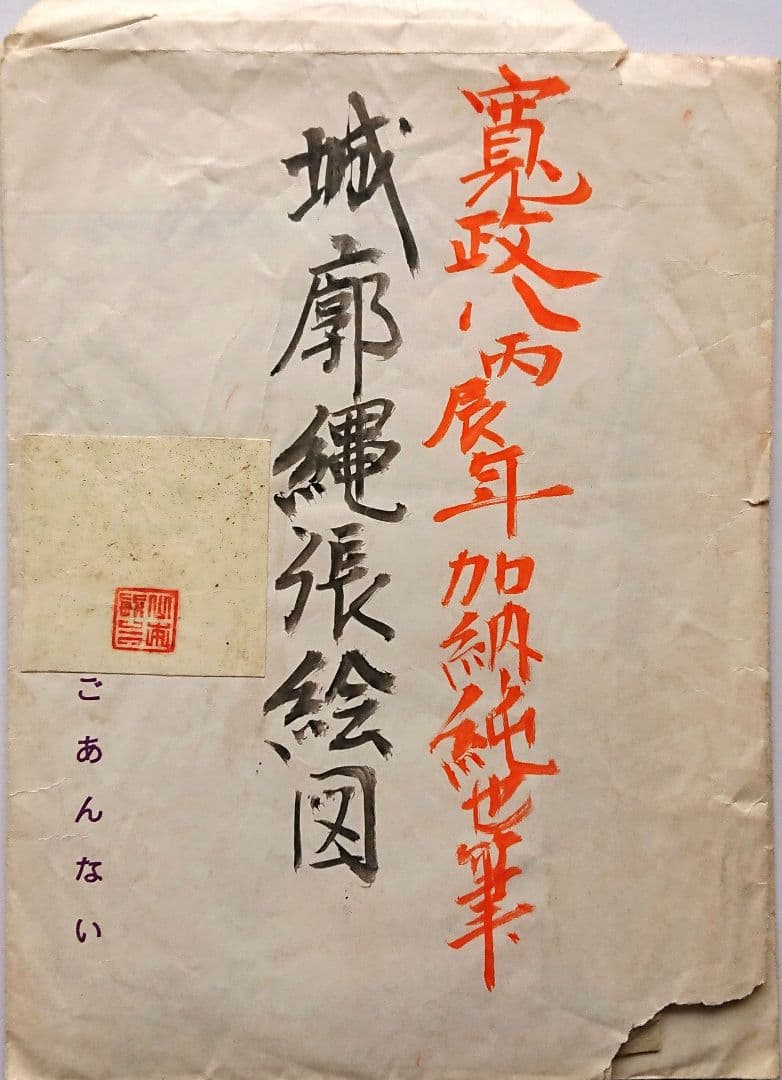 寛政八丙辰年加納純世筆
城廓縄張絵図
ごあんない